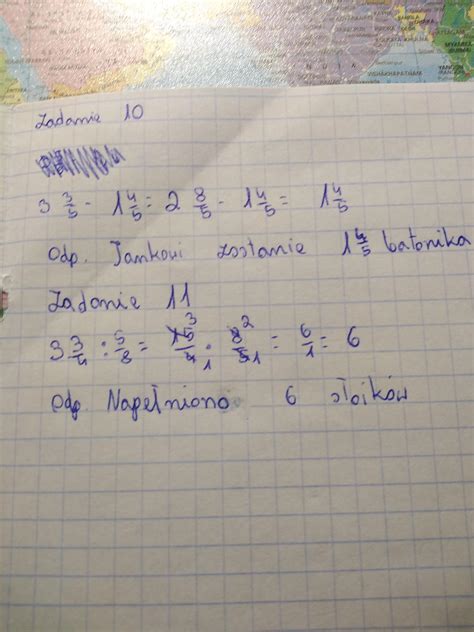 Zadanie 10
3 3/5 - 1 4/5 = 2 8/5 - 1 4/5 = 1 4/5
Odp. Jankowi zostanie 1 4/5 batonika
Zadanie 11
3 3/4 : 5/8 = 15 3/4 1 · 8 2/5 1 = 6/1 = 6
Odp. Napełniono 6 słoików